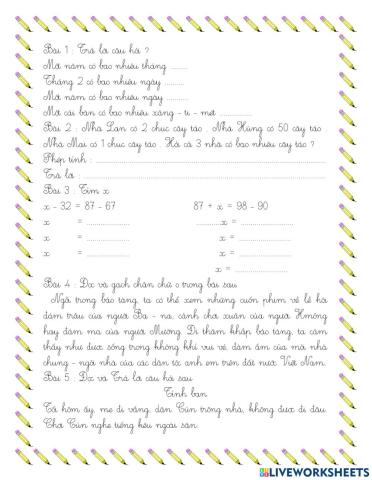 Bài 1 : Trả lời câu hỏi ?
Một năm có bao nhiêu tháng ........
Tháng 2 có bao nhiêu ngày ........
Một năm có bao nhiêu ngày ........
Một cái bàn có bao nhiêu xăng - ti - mét ............
Bài 2 : Nhà Lan có 2 chục cây táo . Nhà Hùng có 50 cây táo .
Nhà Mai có 1 chục cây táo . Hỏi cả 3 nhà có bao nhiêu cây táo ?
Phép tính : ............
Trả lời : ............
Bài 3 : Tìm x
x - 32 = 87 - 67 87 + x = 98 - 90
x = ............ ............x = ............
x = ............ x = ............
x = ............ x = ............
x = ............
Bài 4 : Đọc và gạch chân chữ o trong bài sau
Ngồi trong bảo tàng, ta có thể xem những cuốn phim về lễ hội
đâm trâu của người Ba - na, cảnh chơi xuân của người Hmông
hay đám ma của người Mường. Đi thăm khắp bảo tàng, ta cảm
thấy như được sống trong không khí vui vẻ, đầm ấm của mái nhà
chung - ngôi nhà của các dân tộc anh em trên đất nước Việt Nam.
Bài 5 : Đọc và Trả lời câu hỏi sau
Tình bạn
Tối hôm ấy, mẹ đi vắng, dặn Cún trông nhà, không được đi đâu.
Chợt Cún nghe tiếng kêu ngoài sân.
LIVEWORKSHEETS